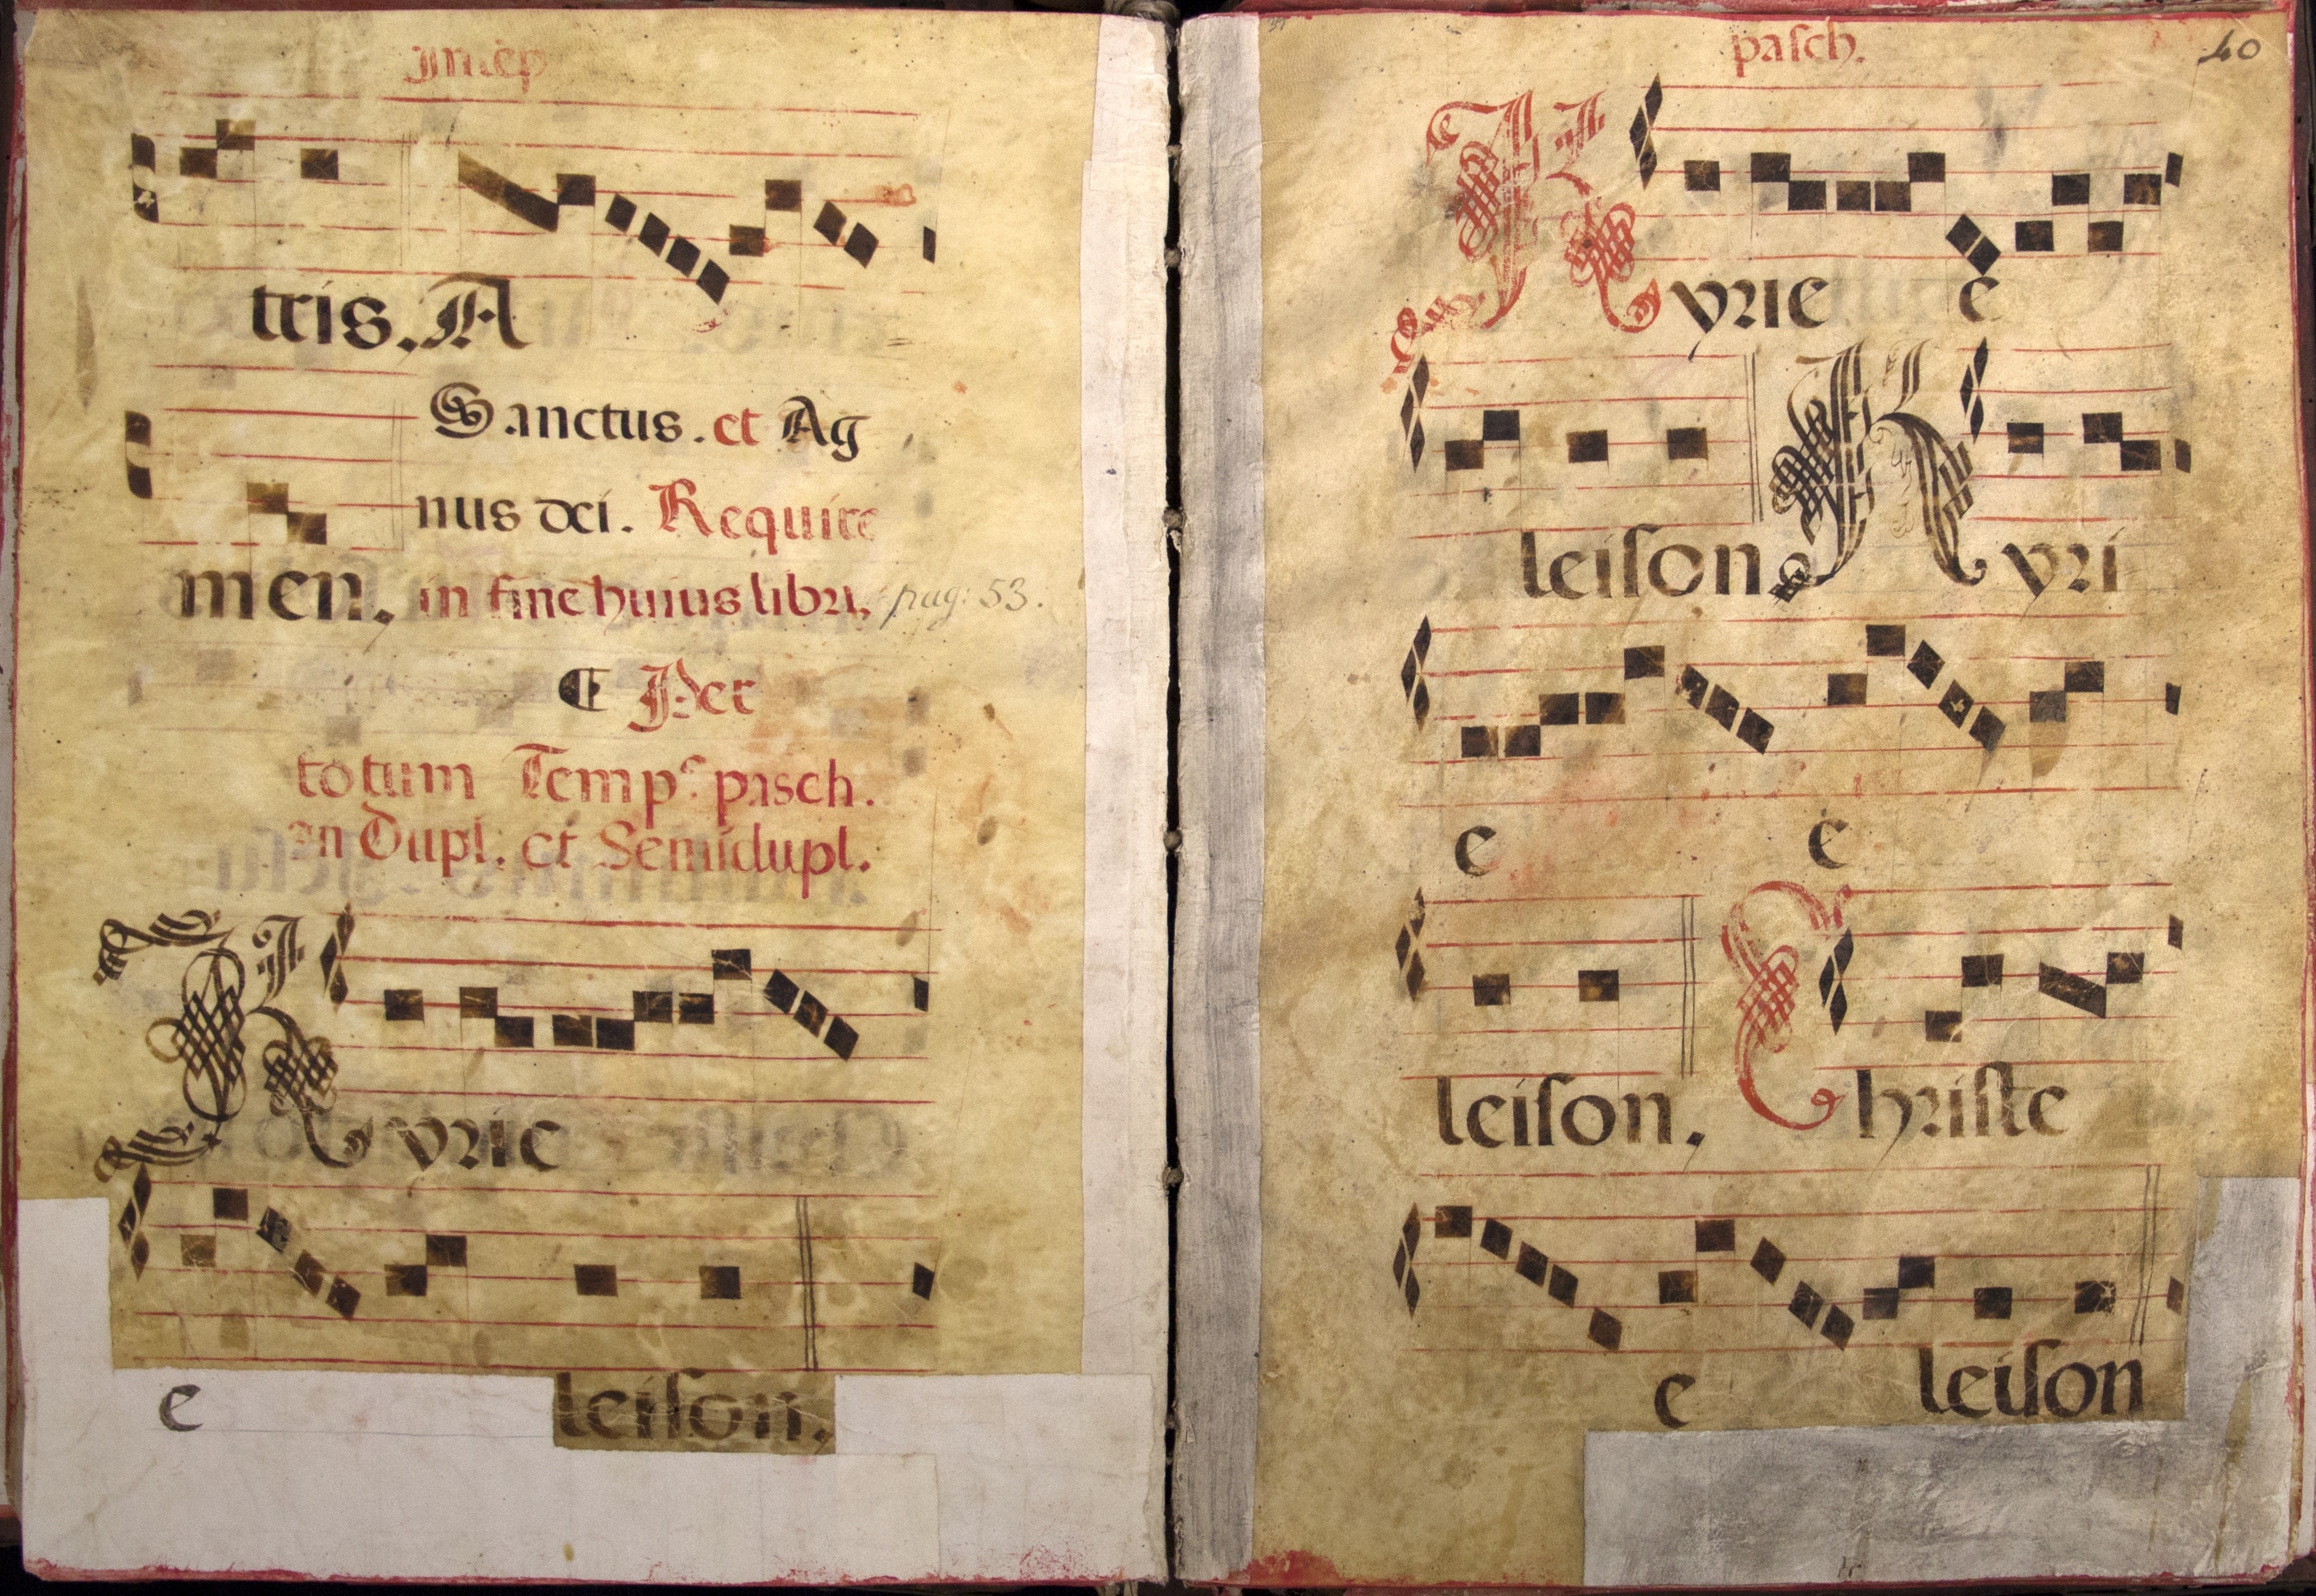 tris. A
Sanctus. et Ag
nus dei. Require
men. in fine huius libri, pag: 53.
Per
totum Temp.e pasch.
in Dupl. et Semidupl.
Kyrie
e leison.
pasch. 40
Kyrie e
leison. Kyri
e e
leison. Christe
e leison